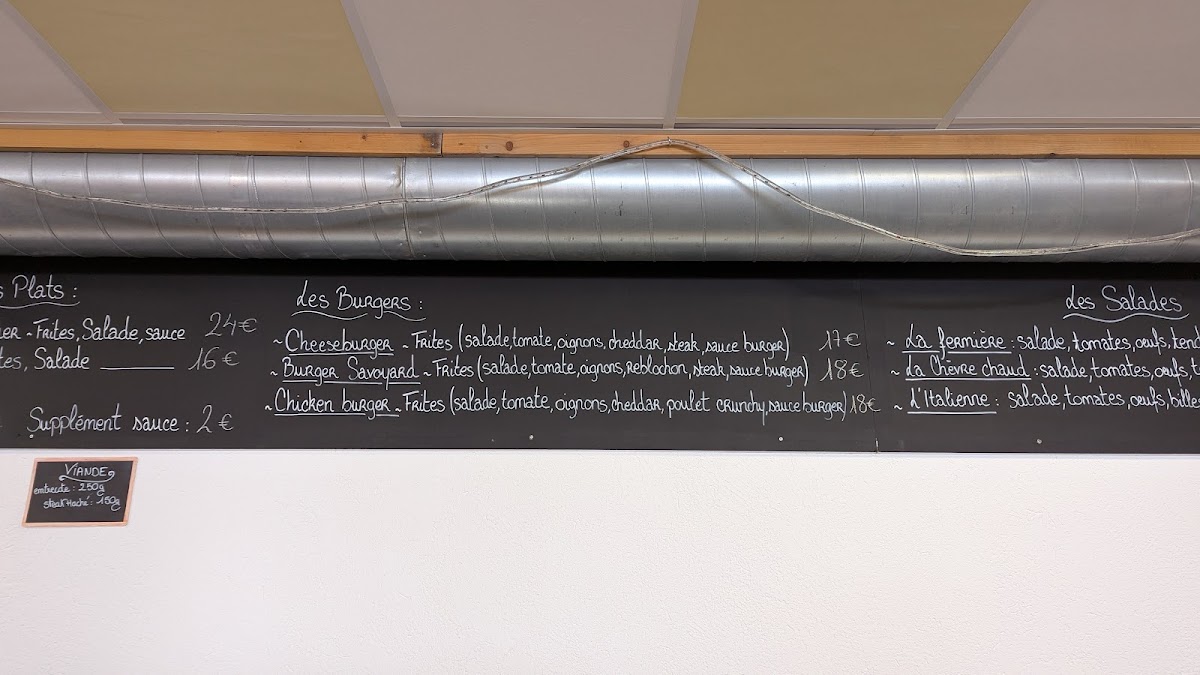 s Plats :
er ~ Frites, Salade, sauce 24€
tes, Salade 16€
Supplément sauce : 2€
VIANDE
entrecote : 250g
steak Haché : 150g
Les Burgers :
~ Cheeseburger ~ Frites (salade, tomate, oignons, cheddar, steak, sauce burger) 17€
~ Burger Savoyard ~ Frites (salade, tomate, oignons, Reblochon, steak, sauce burger) 18€
~ Chicken burger ~ Frites (salade, tomate, oignons, cheddar, poulet crunchy, sauce burger) 18€
Les Salades
~ La fermière : salade, tomates, oeufs, tend
~ La Chèvre chaud : salade, tomates, oeufs, t
~ L'Italienne : salade, tomates, oeufs, billes